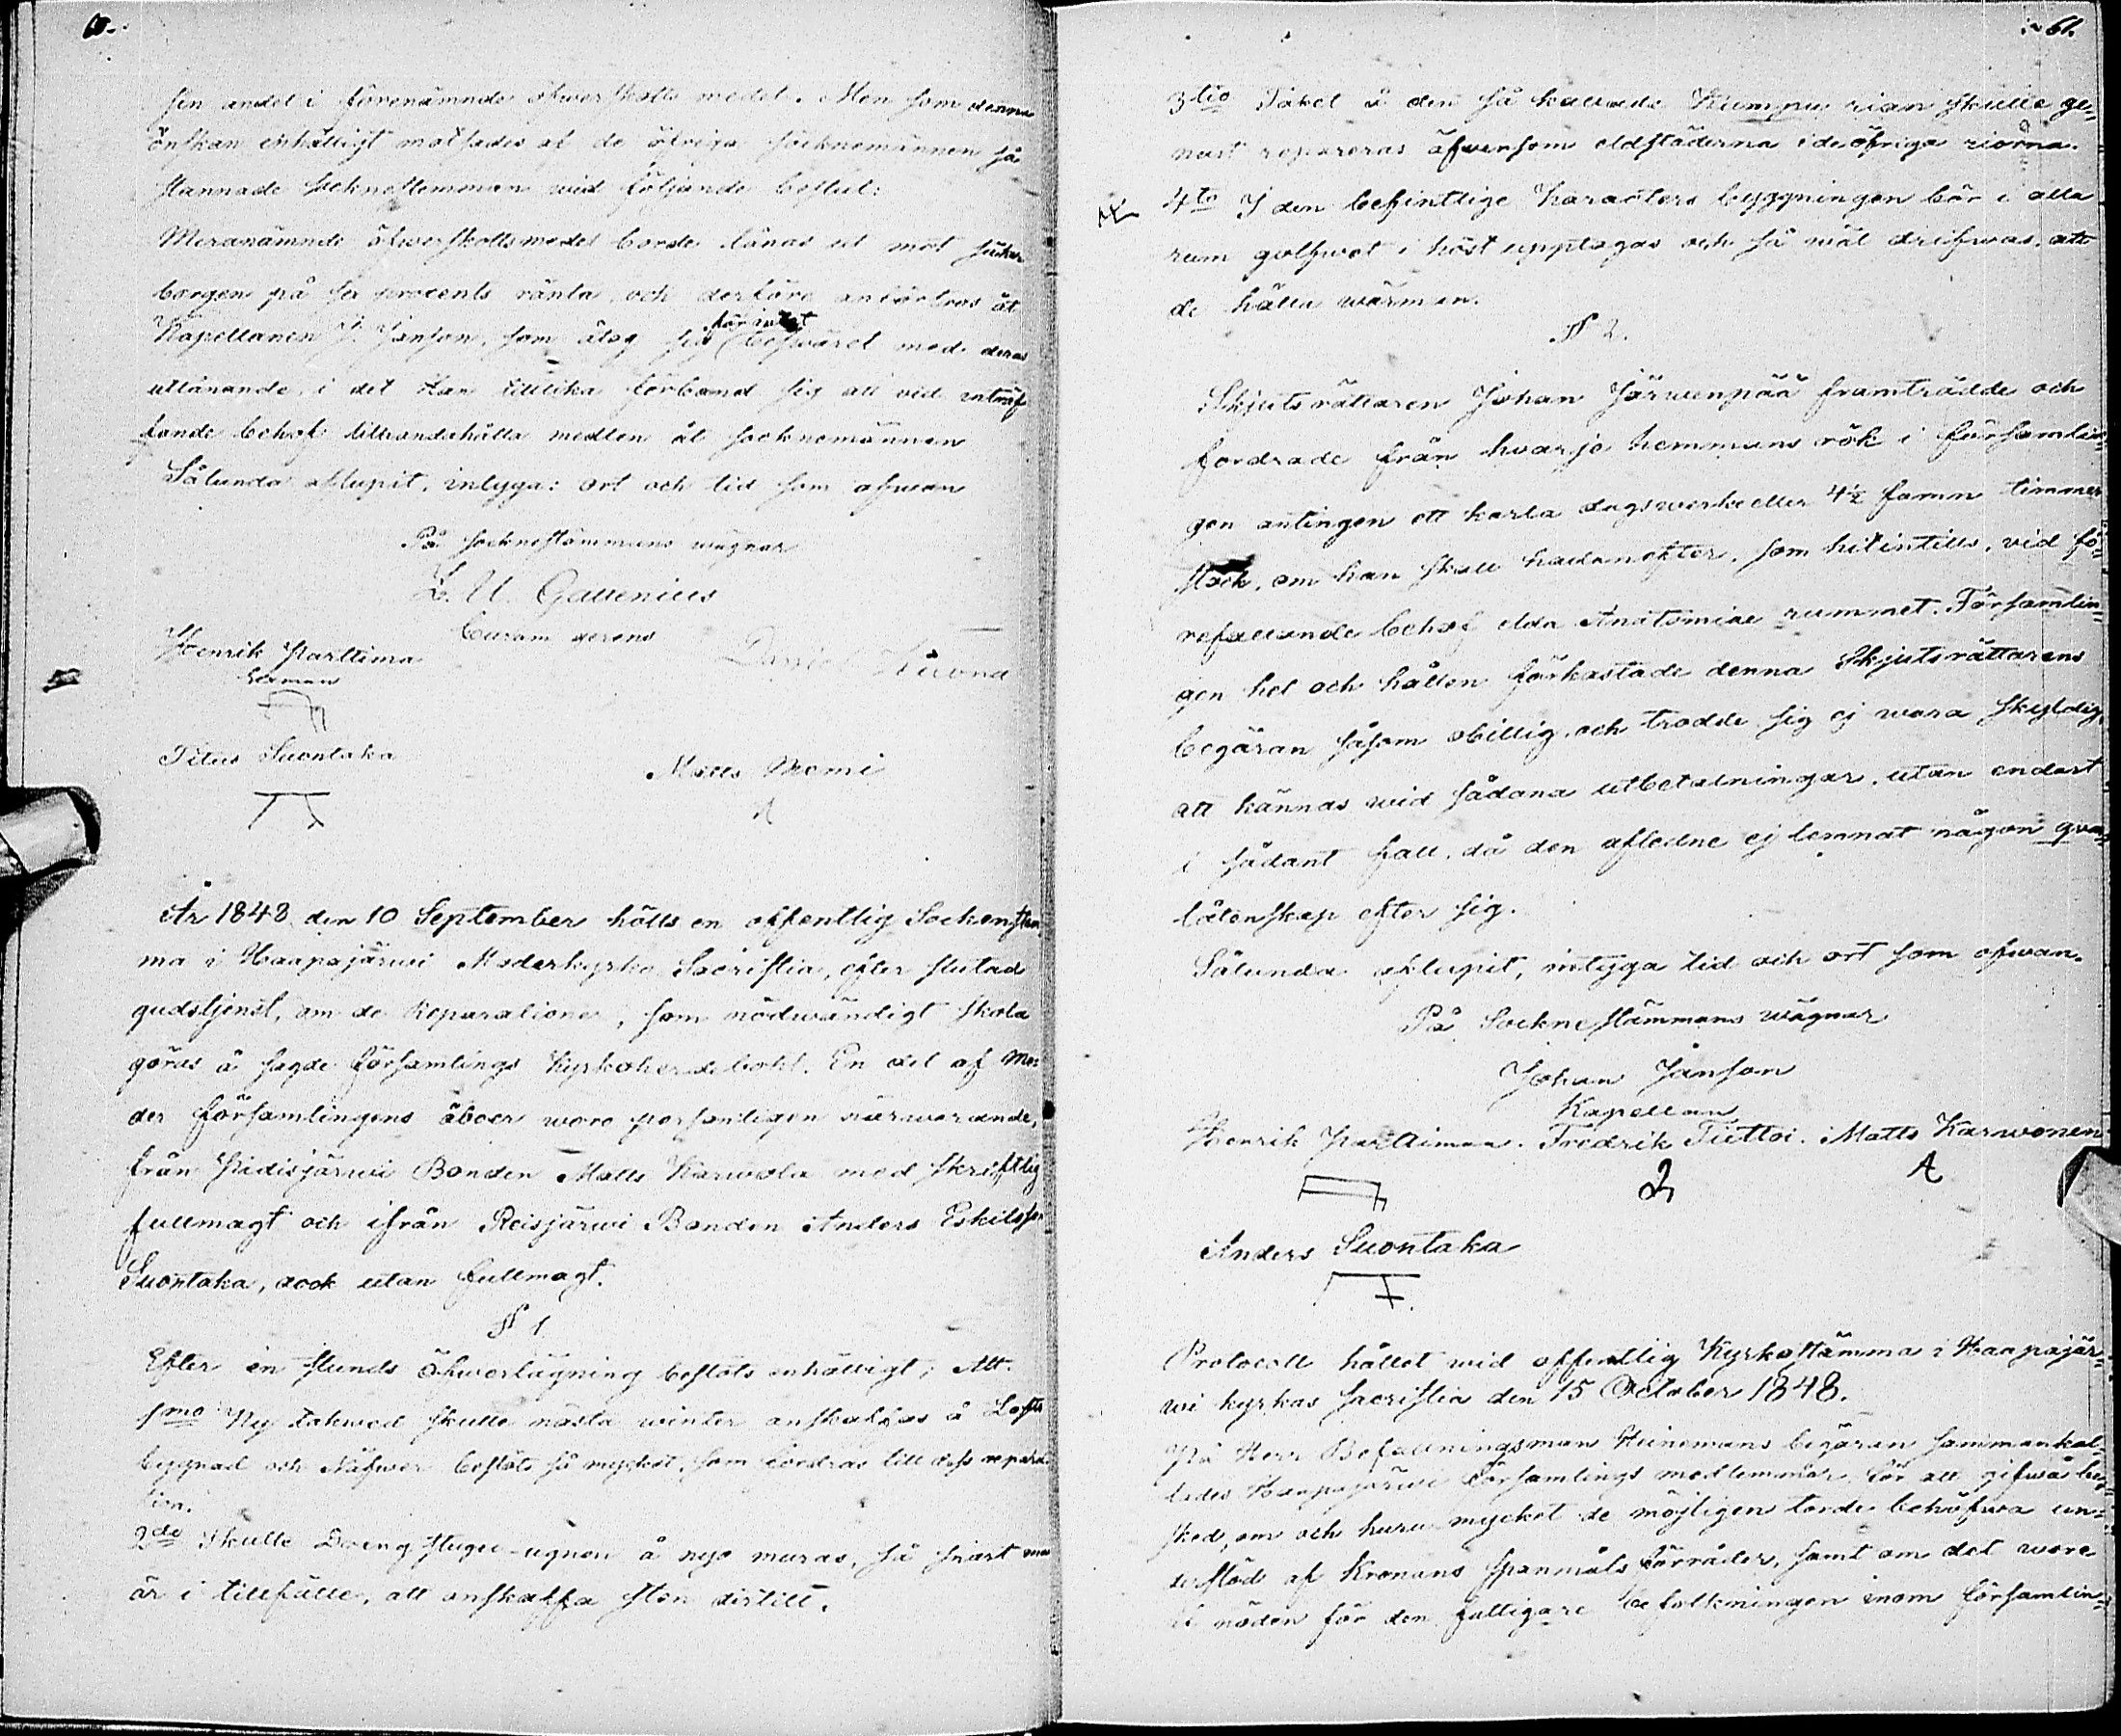 60.
sin andel i förenämnde öfwerskotts medel. Men som denna
önskan enhälligt motsades af de öfriga socknemännen så
stannade Socknestemman wid följande beslut:
Meranämnde öfwerskottsmedel borde lånas ut mot säker
borgen på sex procents ränta och derföre anförtros åt
Kapellanen J. Janson, som åtog sig för intet beswäret med deras
utlånande, i det Han tillika förband sig att vid inträf
fande behof tillhandahålla medlen åt socknemännen
Sålunda aflupit, intyga: ort och tid som ofwan
På Socknestämmans wägnar
L. U. Gallenius
Curam gerens
Henrik Parttima
Lexman
Daniel
Titus Suontaka
Matts Momi
År 1848 den 10 September hölls en offentlig Sockenstäm
ma i Haapajärwi Moderkyrko Sacristia, efter slutad
gudstjenst, om de Reparationer, som nödwändigt skola
göras å sagde församlings Kyrkoherdebohl. En del af Mo=
der församlingens åboer woro personligen närwarande,
från Pidisjärwi Bonden Matts Karwola med skriftlig
fullmagt och ifrån Reisjärwi Bonden Anders Eskilsson
Suontaka, dock utan fullmagt.
§ 1
Efter en stunds öfwerlägning beslöts enhälligt; Att
1mo Ny takwed skulle nästa winter anskaffas å Lofts
byggnad och Näfwer beslöts så mycket, som fordras till dess repara
tion.
2do Skulle Dreng stugu-ugnen å nyo muras, så snart man
är i tillfälle, att anskaffa sten dertill.
61.
3tio Taket å den så kallade Kumpu rian skulle ge=
nast repareras äfwensom eldstäderna i de öfriga riorna.
4to I den befintlige Karacters byggningen bör i alla
rum golfwet i höst upptagas och så wäl drifwas, att
de hålla wärmen.
§ 2.
Skjutsrättaren Johan Järwenpää framträdde och
fordrade från hwarje hemmans rök i församlin=
gen antingen ett karla dagswerke eller 4½ famn timmer
stock, om han skall hädanefter, som hitintills, vid fö=
refallande behof elda Anatomiae rummet. Församlin=
gen hel och hållen förkastade denna Skjutsrättarens
begäran såsom obillig, och trodde sig ej wara skyldig,
att kännas wid sådana utbetalningar, utan endast
i sådant fall, då den afledne ej lemnat någon qwar=
låtenskap efter sig.
Sålunda aflupit, intyga tid och ort som ofwan.
På Socknestämmans wägnar
Johan Janson
Kapellan
Henrik Parttimaa. Fredrik Tuttoi. Matts Karwonen
Anders Suontaka
Protocoll hållet wid offentlig Kyrkostämma i Haapajär=
wi kyrkas sacristia den 15 October 1848.
På Herr Befallningsman Heinemans begäran sammankal=
lades Haapajärwi församlings medlemmar, för att gifwa be=
sked, om och huru mycket de möjligen torde behöfwa un=
derstöd af Kronans spanmåls förråder, samt om det wore
af nöden för den fattigare befolkningen inom församlin=